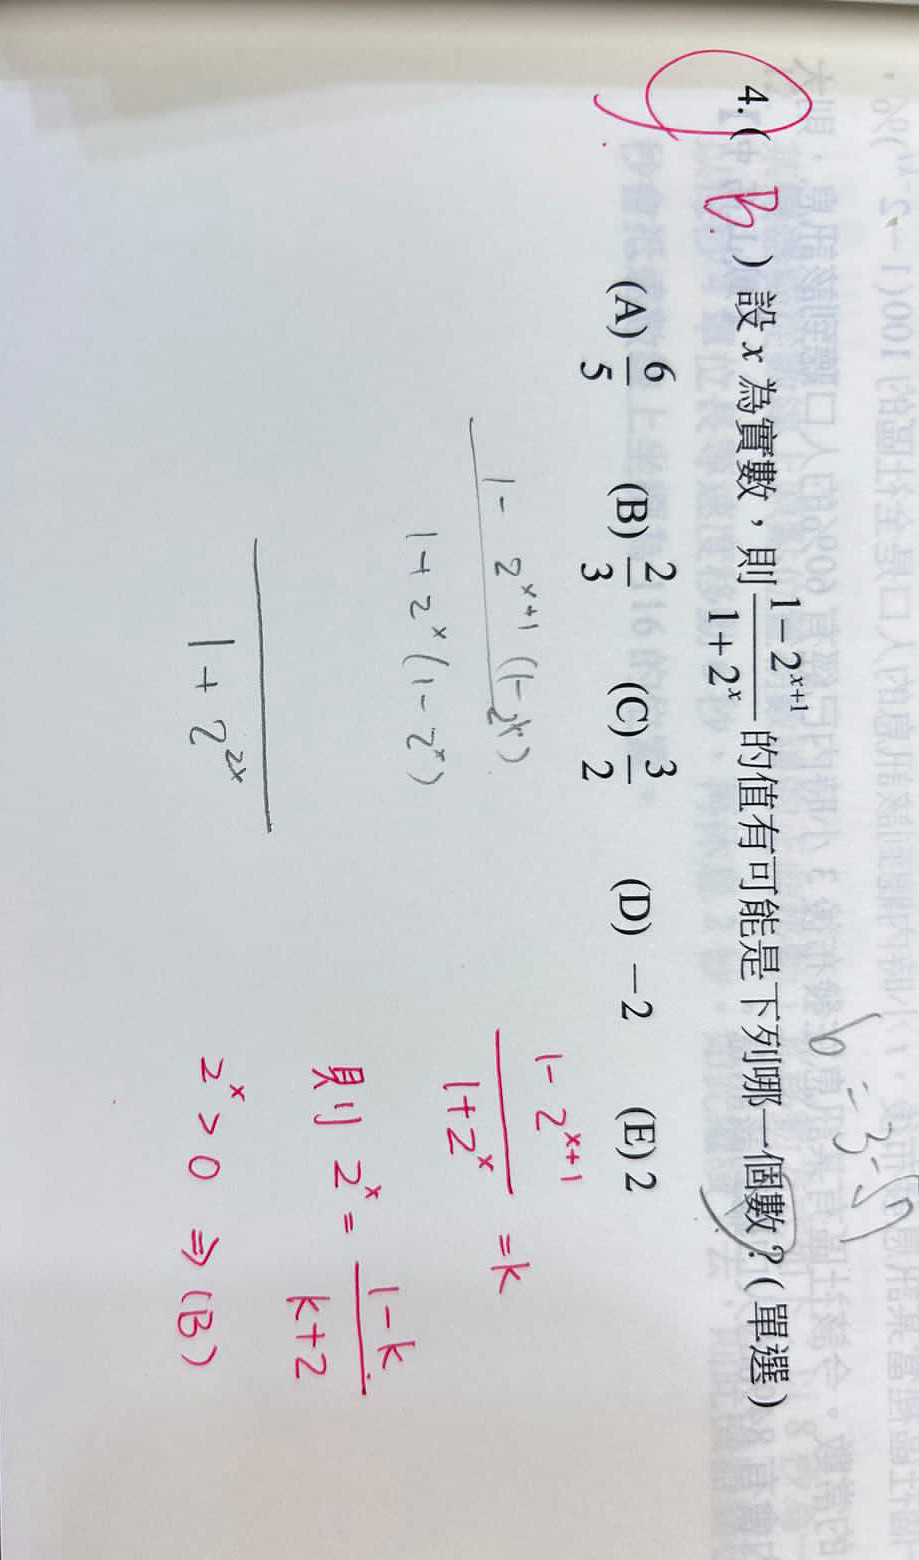 4. ( B. ) 設 x 為實數，則 \frac{1-2^{x+1}}{1+2^x} 的值有可能是下列哪一個數？(單選)
(A) \frac{6}{5} (B) \frac{2}{3} (C) \frac{3}{2} (D) -2 (E) 2
1 - 2^{x+1} (1-2^x)
1 + 2^x (1-2^x)
1 + 2^{2x}
\frac{1-2^{x+1}}{1+2^x} = k
則 2^x = \frac{1-k}{k+2}
2^x > 0 ⇒ (B)